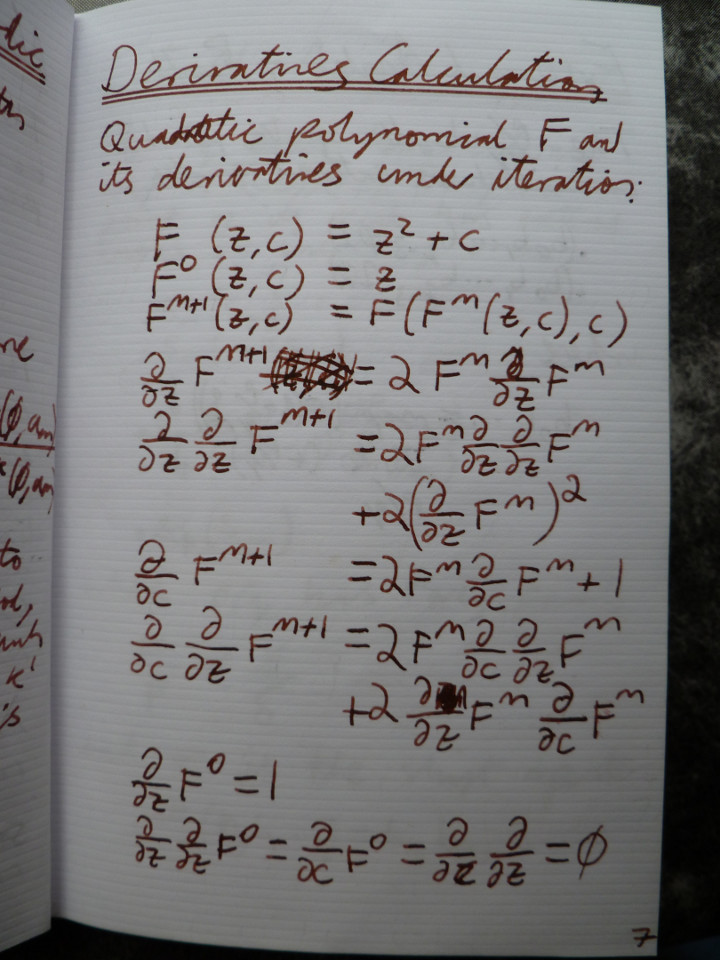 Derivatives Calculation
Quadratic polynomial F and
its derivatives under iteration:
F (z,c) = z² + c
F⁰ (z,c) = z
Fᵐ⁺¹(z,c) = F(Fᵐ(z,c),c)
∂/∂z Fᵐ⁺¹ = 2 Fᵐ ∂/∂z Fᵐ
∂/∂z ∂/∂z Fᵐ⁺¹ = 2Fᵐ ∂/∂z ∂/∂z Fᵐ
+2(∂/∂z Fᵐ)²
∂/∂c Fᵐ⁺¹ = 2Fᵐ ∂/∂c Fᵐ + 1
∂/∂c ∂/∂z Fᵐ⁺¹ = 2Fᵐ ∂/∂c ∂/∂z Fᵐ
+2 ∂/∂z Fᵐ ∂/∂c Fᵐ
∂/∂z F⁰ = 1
∂/∂z ∂/∂z F⁰ = ∂/∂c F⁰ = ∂/∂z ∂/∂z = 0
7
dic
(φ,am)
(φ,am)
to
κ'
is